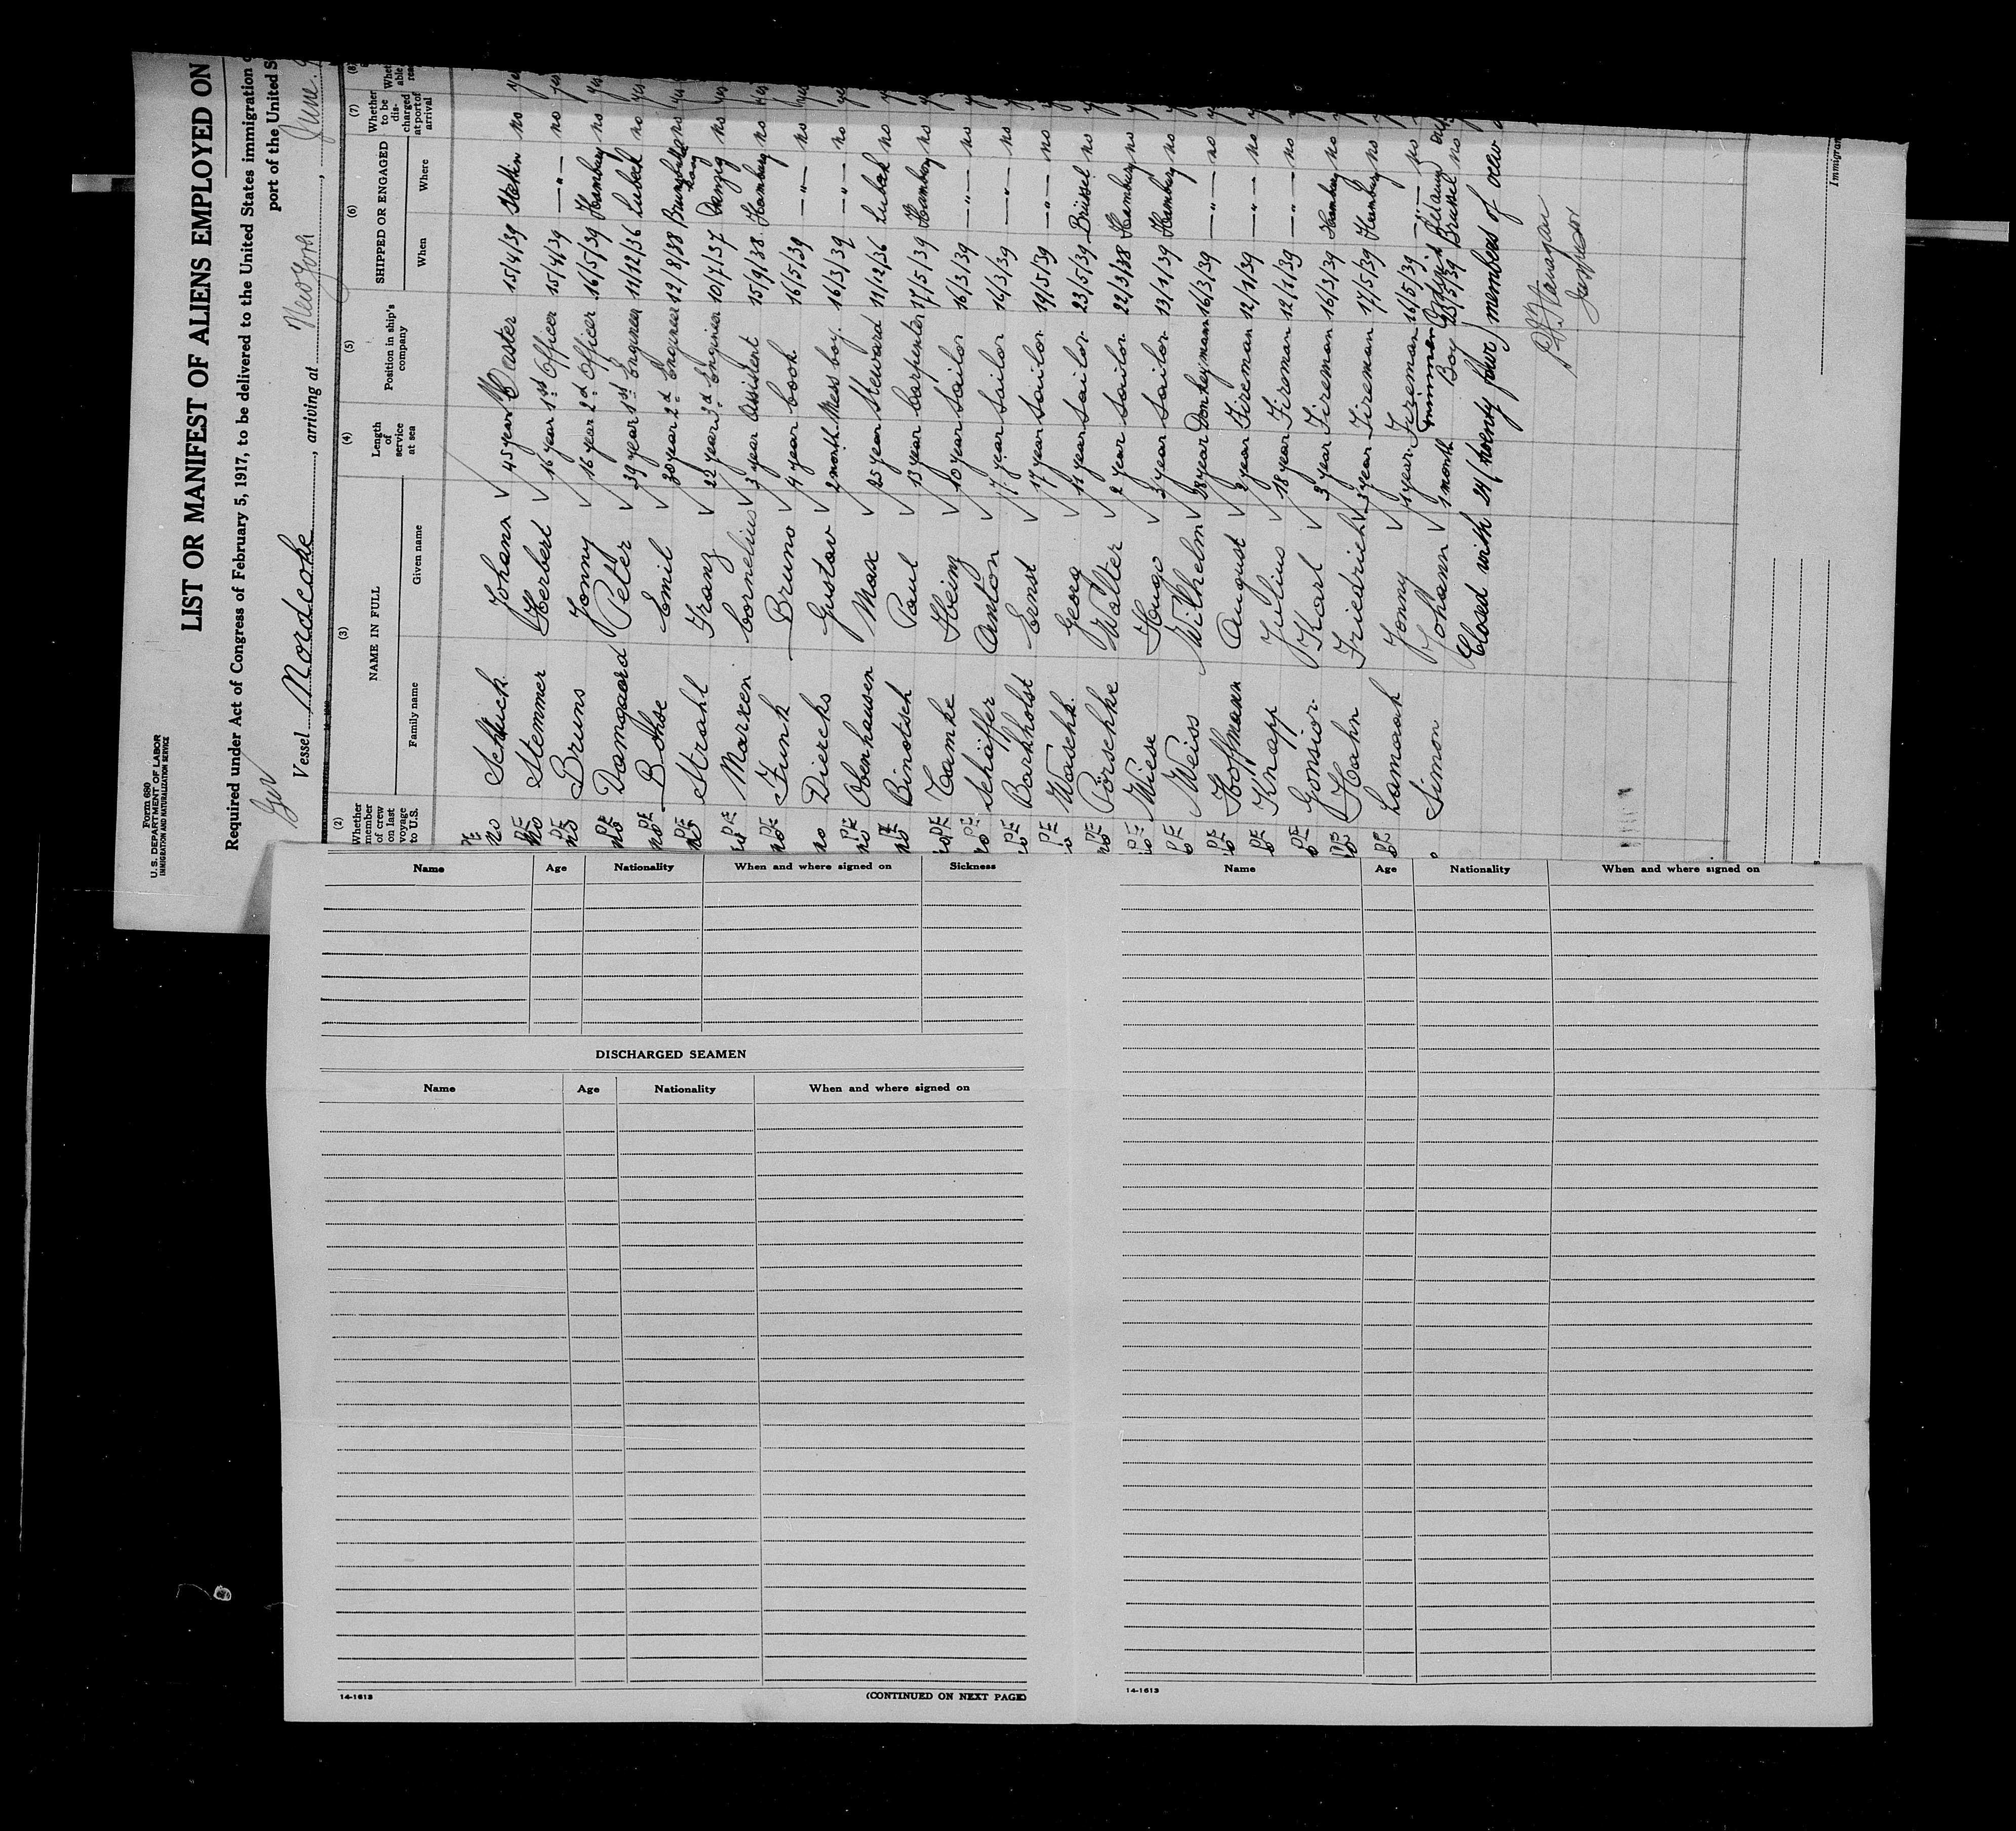 Form 680
U. S. DEPARTMENT OF LABOR
IMMIGRATION AND NATURALIZATION SERVICE
LIST OR MANIFEST OF ALIENS EMPLOYED ON
Required under Act of Congress of February 5, 1917, to be delivered to the United States immigration
port of the United
Ger
Vessel Nordcoke, arriving at New York, June.
(2) (3) (4) (5) (6) (7) (8)
Whether member of crew on last voyage to U.S. NAME IN FULL Length of service at sea Position in ship's company SHIPPED OR ENGAGED Whether to be discharged at port of arrival
Family name Given name When Where
no Schuck Johann 45 year Master 15/4/39 Stettin no yes
no Stemmer Herbert 16 year 1st Officer 15/4/39 —"— no yes
no Bruns Jonny 16 year 2d Officer 16/5/39 Hamburg no yes
no Damgaard Peter 39 year 1st Engineer 11/12/36 Lubeck no yes
no Bohse Emil 30 year 2d Engineer 12/8/38 no yes
no Strahl Franz 22 year 3d Engineer 10/7/37 Danzig no yes
no Marxen Cornelius 3 year Assistent 15/9/38 Hamburg no yes
no Funk Bruno 4 year Cook 16/5/39 —"— no yes
no Diercks Gustav 2 month Mess boy 16/3/39 —"— no
no Obenhausen Max 25 year Steward 11/12/36 Lubeck no
no Binotsch Paul 13 year Carpenter 17/5/39 Hamburg no
no Tamke Heinz 10 year Sailor 16/3/39 —"— no
no Schäffer Anton 17 year Sailor 16/3/39 —"— no
Barkholst Ernst 17 year Sailor 19/5/39 —"— no
Waschk. Georg 11 year Sailor 23/5/39 Brüssel no
no Pörschke Walter 2 year Sailor 22/3/38 Hamburg no
Wiese Hugo 3 year Sailor 13/1/39 Hamburg no
Weiss Wilhelm 28 year Donkeyman 16/3/39 —"— no
Hoffmann August 2 year Fireman 12/1/39 —"— no
Knapp Julius 18 year Fireman 12/1/39 —"— no
Gonsior Karl 3 year Fireman 16/3/39 Hamburg no
Hahn Friedrich 3 year Fireman 17/5/39 Hamburg no
Lamaak Jonny 1 year Fireman 16/5/39 —"— no
Simon Johann 1 month Boy 23/5/39 Brüssel no
Closed with 24 (twenty four) members of crew
Name Age Nationality When and where signed on Sickness
DISCHARGED SEAMEN
Name Age Nationality When and where signed on
14-1613
(CONTINUED ON NEXT PAGE)
Name Age Nationality When and where signed on
14-1613